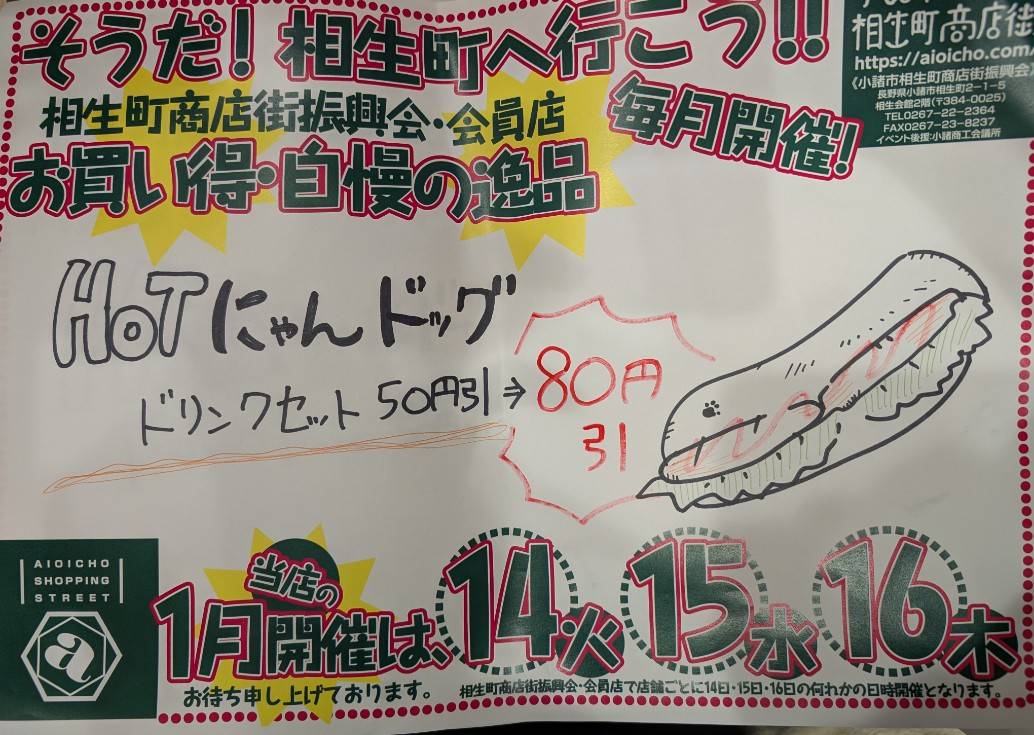 そうだ!相生町へ行こう!!
相生町商店街振興会・会員店
お買い得・自慢の逸品
毎月開催!
相生町商店街
https://aioicho.com
《小諸市相生町商店街振興会》
長野県小諸市相生町2-1-5
相生会館2階(〒384-0025)
TEL0267-22-2384
FAX0267-23-8237
イベント後援:小諸商工会議所
HOTにゃんドッグ
ドリンクセット 50円引→
80円
引
AIOICHO
SHOPPING
STREET
a
当店の
1月開催は、14火 15水 16木
お待ち申し上げております。
相生町商店街振興会・会員店で店舗ごとに14日・15日・16日の何れかの日時開催となります。